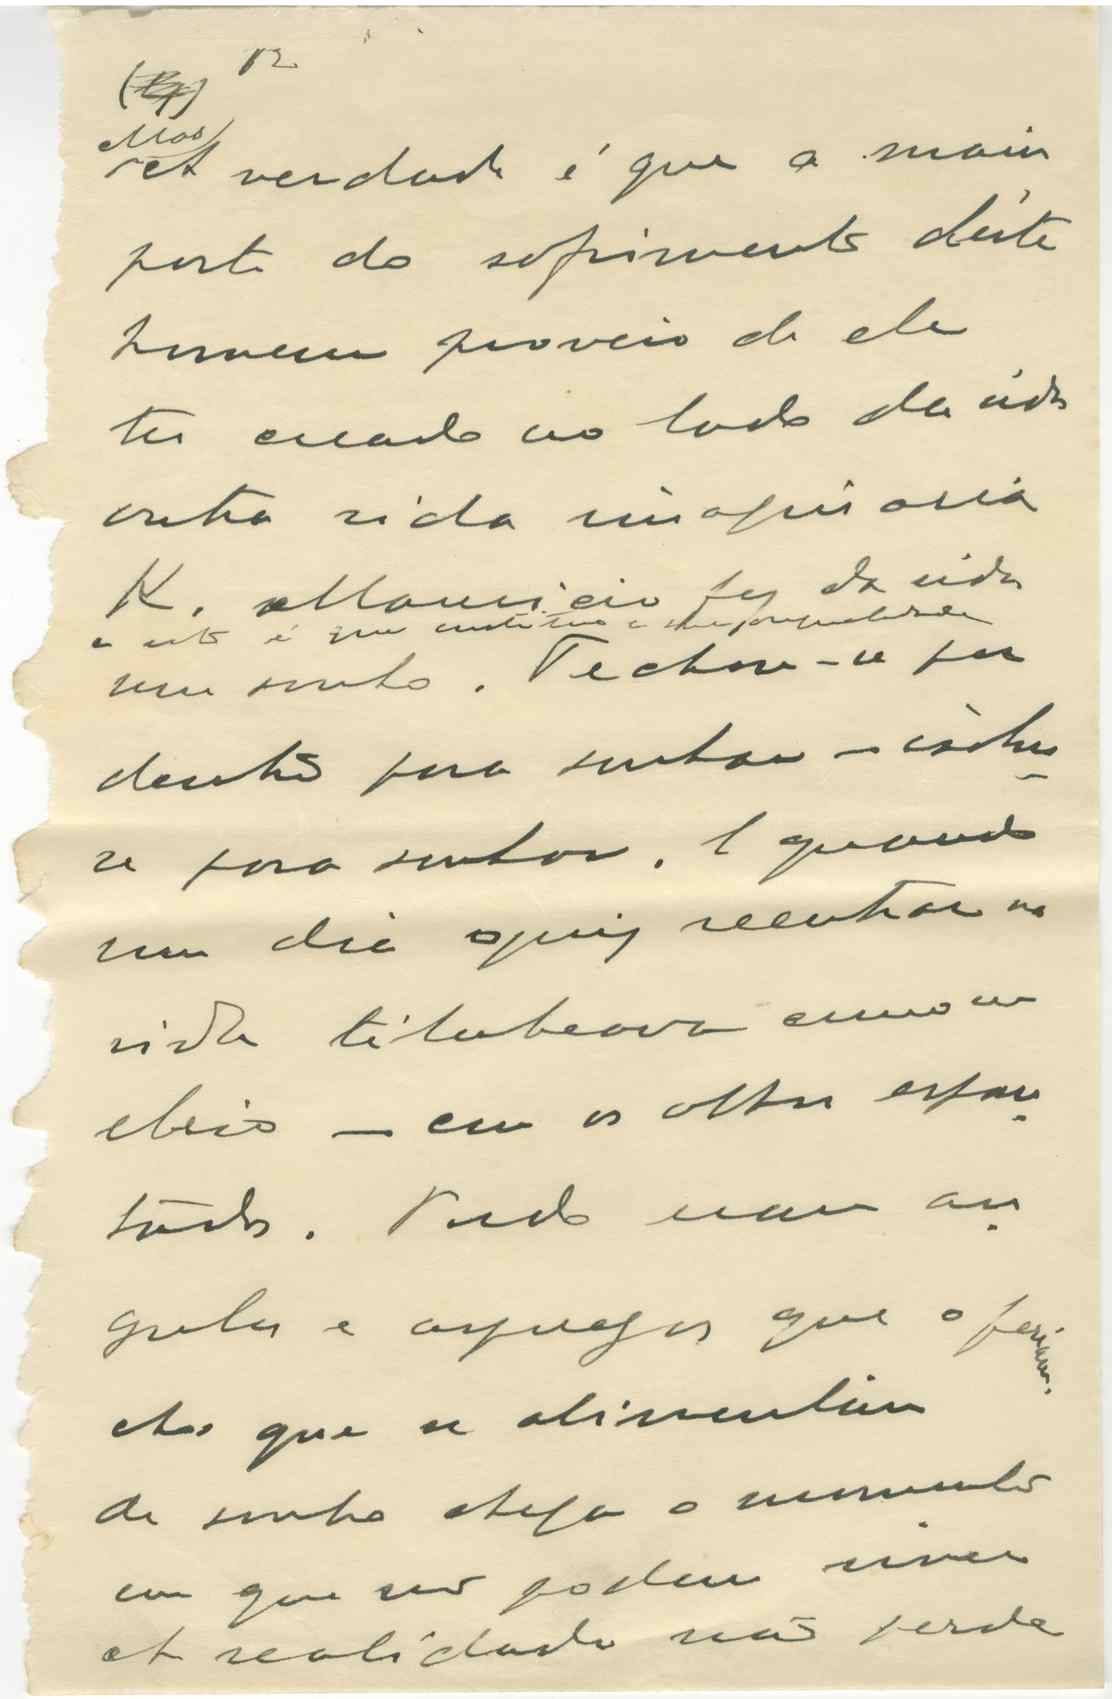 12
Mas
A verdade é que a maior
parte do sofrimento dêste
homem proveio de ele
ter creado ao lado da vida
outra vida imaginaria
K. Mauricio fez da vida
e isto é que constitue a sua
um sonho. Fechou-se por
dentro para sonhar – isolou-
se para sonhar. E quando
um dia quis reentrar na
vida titubeava como um
ebrio – com os olhos espan-
tados. Tudo eram an-
gulos e arestas que o feriam.
Aos que se alimentam
de sonho chega o momento
em que não podem viver
A realidade não perde